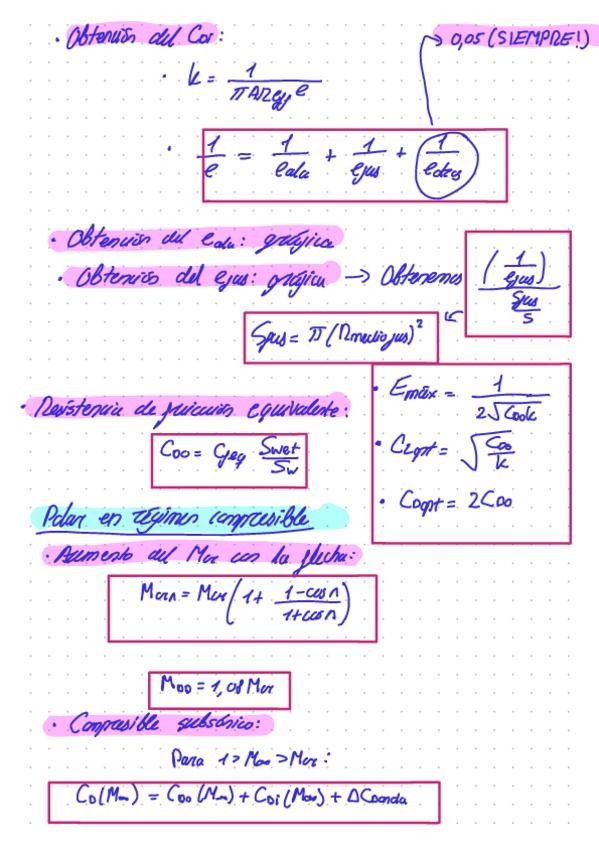 · Obtención del C_Di:
→ 0,05 (SIEMPRE!)
· k = 1 / (π AR_eff e)
· 1/e = 1/e_ala + 1/e_fus + 1/e_otros
· Obtención del e_ala: gráfica
· Obtención del e_fus: gráfica → Obtenemos (1/e_fus) / (S_fus/S)
S_fus = π (R_medio fus)²
· Resistencia de fricción equivalente:
C_D0 = C_feq S_wet/S_w
· E_máx = 1 / (2√(C_D0 k))
· C_Lopt = √(C_D0/k)
· C_Dopt = 2C_D0
Polar en régimen compresible
· Aumento del M_cr con la flecha:
M_crΛ = M_cr (1 + (1-cos Λ)/(1+cos Λ))
M_DD = 1,08 M_cr
· Compresible subsónico:
Para 1 > M_∞ > M_cr:
C_D(M_∞) = C_D0 (M_∞) + C_Di (M_∞) + ΔC_D onda